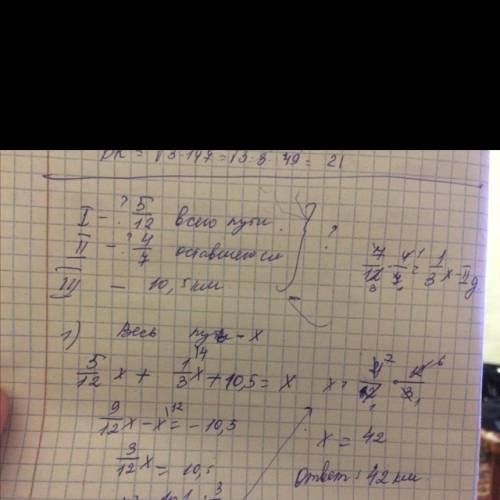 DK = √3·147 = √3·3·49 = 21
I – ? 5/12 всего пути
II – ? 4/7 оставшегося
III – 10,5 км
?
7/12 · 4/7 = 1/3 x – II д
1) Весь путь – x
5/12 x + 1/3 x + 10,5 = x
9/12 x – x = – 10,5
3/12 x = 10,5
x = 42
Ответ: 42 км